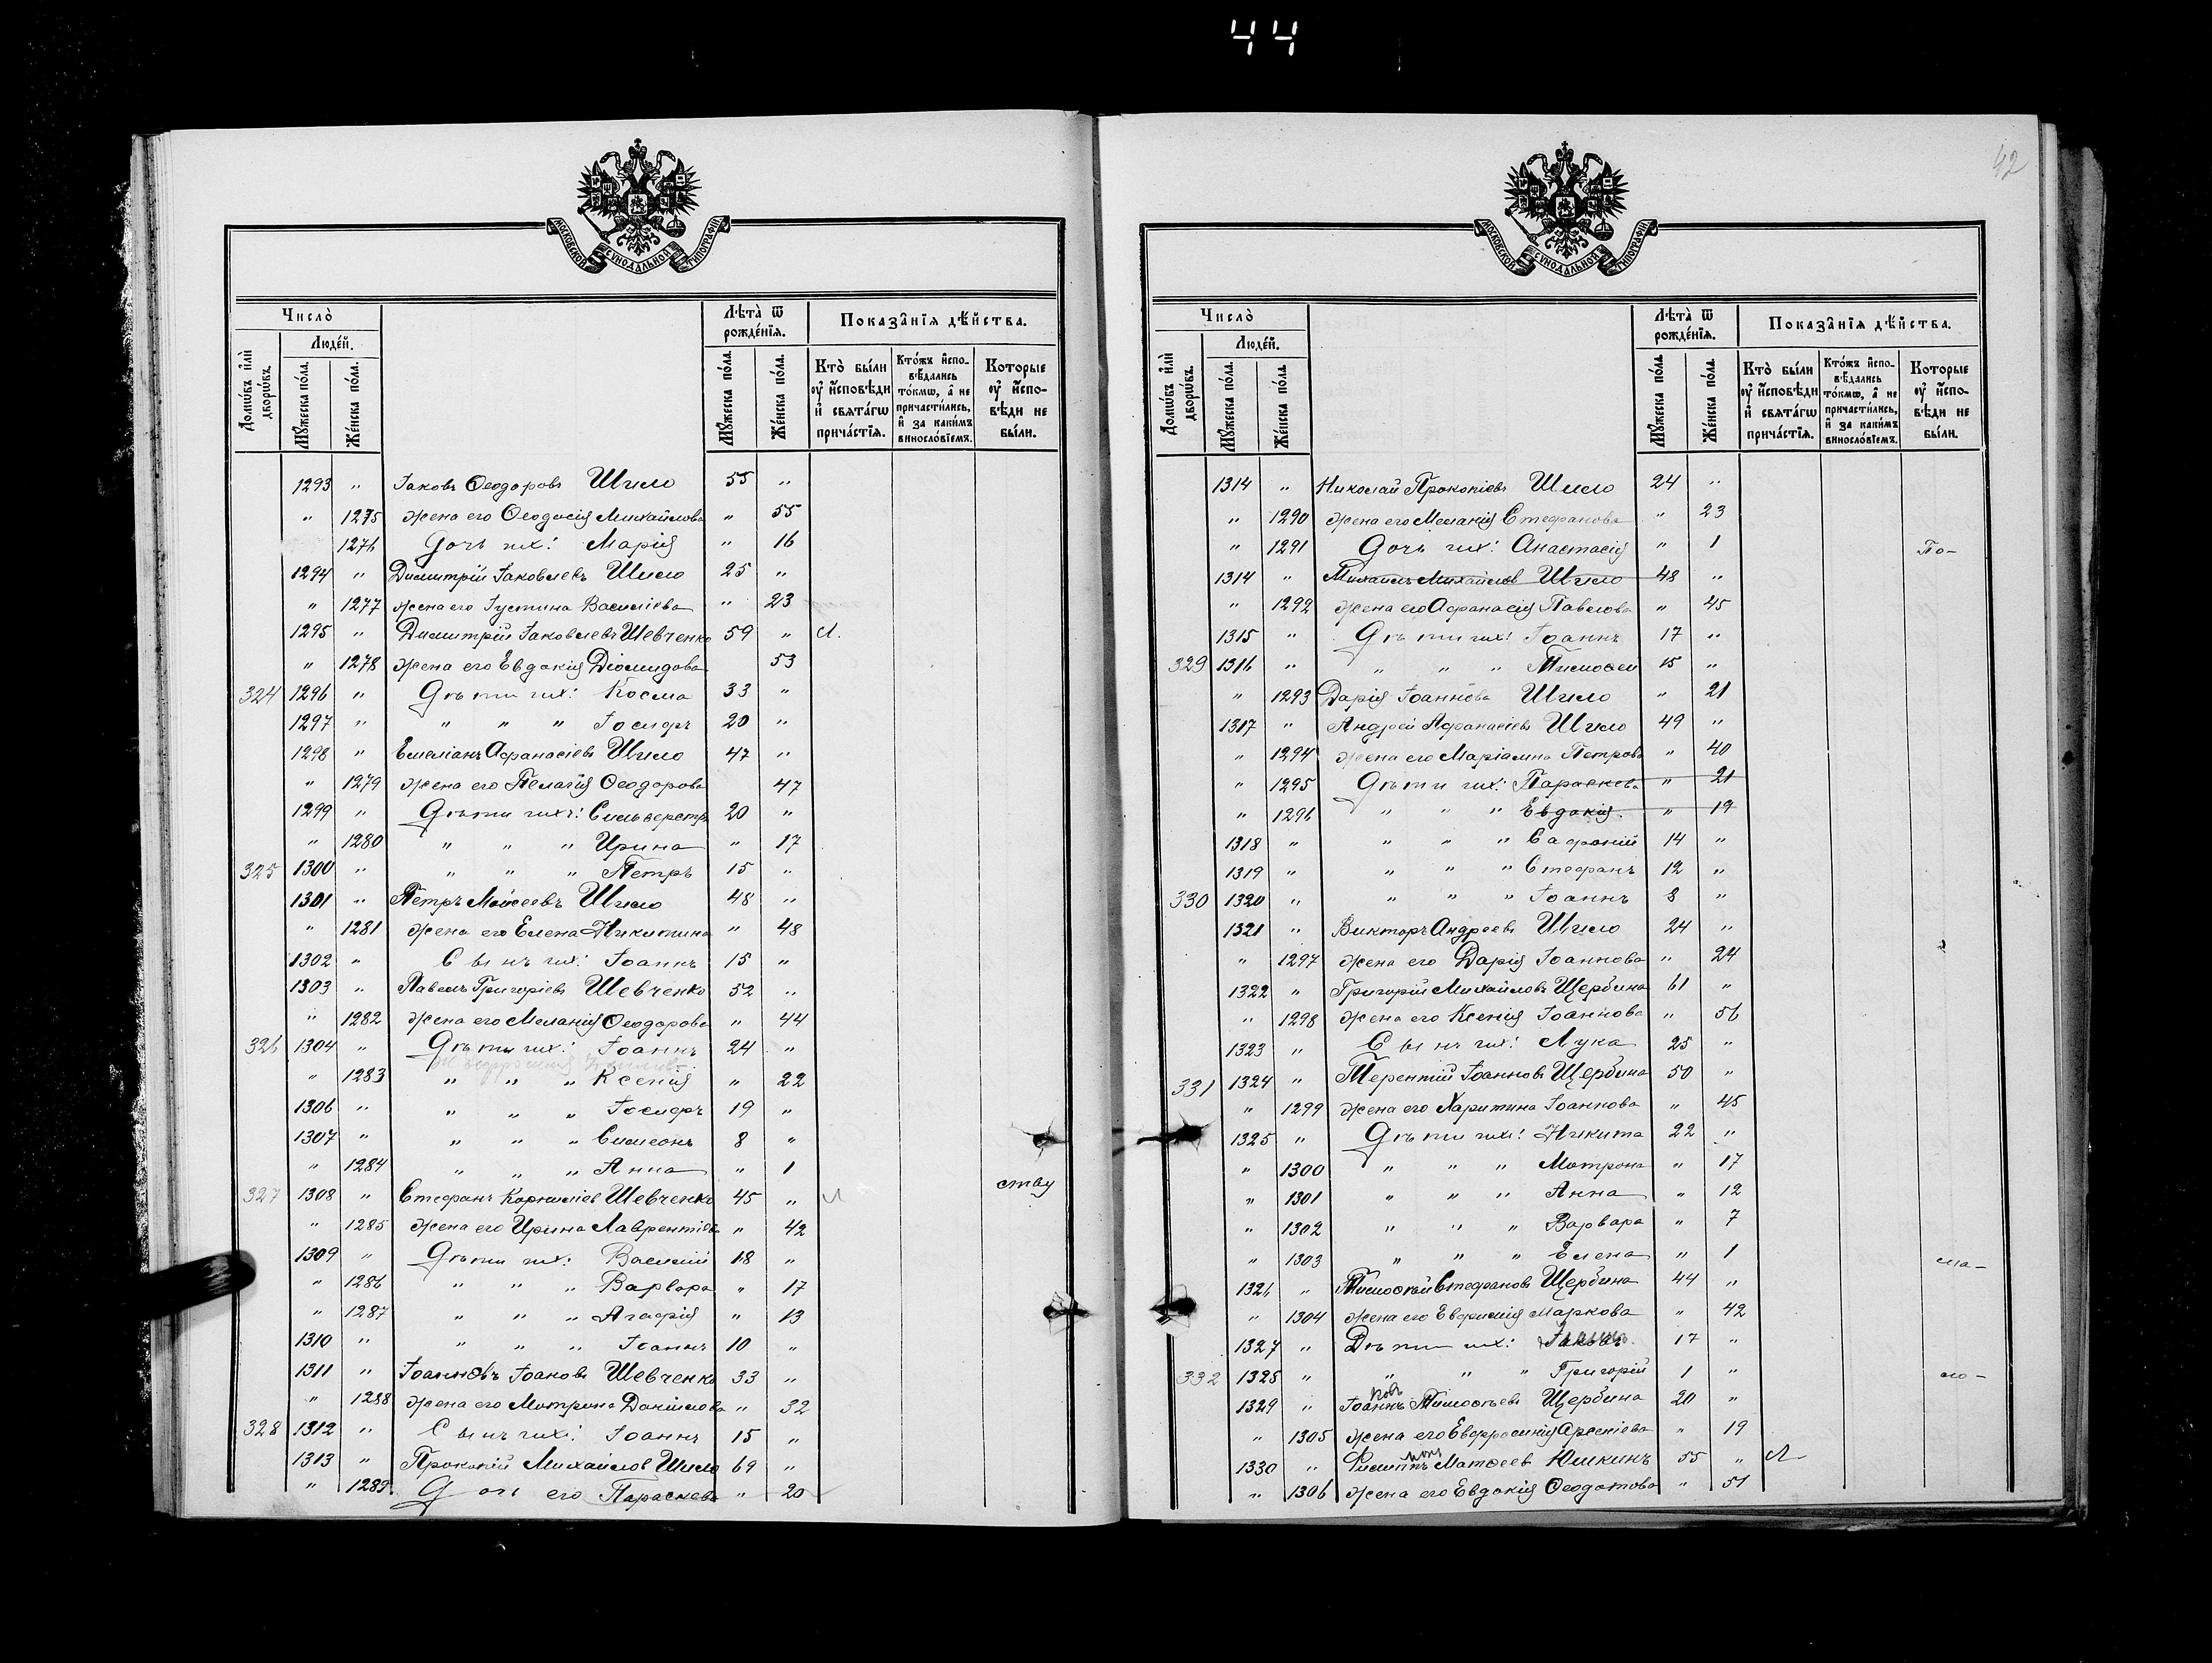 44
МОСКОВСКОЙ СѴНОДАЛЬНОЙ ТИПОГРАФІИ
Число̀
Людéй.
Домѡ́въ и҆лѝ дворѡ́въ.
Мꙋ́жеска по́ла.
Же́нска по́ла.
Лѣ́та ѿ рожде́нїѧ.
Мꙋ́жеска по́ла.
Же́нска по́ла.
Показа̑нїѧ дѣ́йства.
Кто̀ бы́ли ᲂу҆ и҆́сповѣди и҆ свѧта́гѡ прича́стїѧ.
Кто́жъ и҆спо-вѣ́дались то́кмѡ, а҆ не причасти́лись, и҆ за каки́мъ винослⷪ́вїемъ.
Которые ᲂу҆ и҆́спо-вѣди не бы́ли.
1293 " Іаковъ Ѳеодоровъ Шило 55 "
" 1275 жена его Ѳеодосія Михайлова " 55
1276 Дочь их: Марія " 16
1294 " Димитрій Іаковлевъ Шило 25 "
" 1277 жена его Іустина Василіева " 23
1295 " Димитрій Іаковлевъ Шевченко 59 "
" 1278 жена его Евдокія Діомидова 53
324 1296 " Дѣти их: Косма 33 "
1297 " " " " Іосифъ 20 "
1298 " Емеліанъ Афанасіевъ Шило 47 "
" 1279 жена его Пелагія Ѳеодорова 47
1299 " Дѣти ихъ: Сильверстръ 20 "
" 1280 " " " Ирина " 17
325 1300 " " " " Петръ 15 "
1301 " Петръ Моисеевъ Шило 48 "
" 1281 жена его Елена Никитина " 48
1302 " Сынъ их: Іоаннъ 15 "
1303 " Павелъ Григоріевъ Шевченко 52 "
" 1282 жена его Меланія Ѳеодорова " 44
326 1304 " Дѣти их: Іоаннъ 24 "
" 1283 " " " Ксенія " 22
1306 " " " " Іосифъ 19 "
1307 " " " " Симеонъ 8 "
" 1284 " " " Анна " 1
327 1308 " Стефанъ Корнилiев Шевченко 45 " ству
" 1285 жена его Ирина Лаврентіева " 42
1309 " Дѣти их: Василій 18 "
" 1286 " " " Варвара " 17
" 1287 " " " Агафія " 13
1310 " " " " Іоаннъ 10 "
1311 " Іоаннъ Іоанов Шевченко 33 "
" 1288 жена его Мотрона Даніилова " 32
328 1312 " Сынъ их: Іоаннъ 15 "
1313 " Прокопій Михайлов Шило 69 "
" 1289 Доч его Параскева " 20
42
МОСКОВСКОЙ СѴНОДАЛЬНОЙ ТИПОГРАФІИ
Число̀
Людéй.
Домѡ́въ и҆лѝ дворѡ́въ.
Мꙋ́жеска по́ла.
Же́нска по́ла.
Лѣ́та ѿ рожде́нїѧ.
Мꙋ́жеска по́ла.
Же́нска по́ла.
Показа̑нїѧ дѣ́йства.
Кто̀ бы́ли ᲂу҆ и҆́сповѣди и҆ свѧта́гѡ прича́стїѧ.
Кто́жъ и҆спо-вѣ́дались то́кмѡ, а҆ не причасти́лись, и҆ за каки́мъ винослⷪ́вїемъ.
Которые ᲂу҆ и҆́спо-вѣди не бы́ли.
1314 " Николай Прокопіевъ Шило 24 "
" 1290 жена его Меланія Стефанова " 23
" 1291 Дочь их: Анастасія " 1 По-
1314 " Михаилъ Михайлов Шило 48 "
" 1292 жена его Афанасія Павлова " 45
1315 " Дѣти их: Іоаннъ 17 "
329 1316 " " " " Тимофей 15 "
" 1293 Дарія Іоаннова Шило " 21
1317 " Андрей Афанасіевъ Шило 49 "
" 1294 жена его Маріамна Петрова " 40
" 1295 Дѣти их: Параскева " 21
" 1296 " " " Евдокія " 19
1318 " " " " Сафоній 14 "
1319 " " " " Стефанъ 12 "
330 1320 " " " " Іоаннъ 8 "
1321 " Викторъ Андреевъ Шило 24 "
" 1297 жена его Дарія Іоаннова " 24
1322 " Григорій Михайловъ Щербина 61 "
" 1298 жена его Ксенія Іоаннова " 56
1323 " Сынъ их: Лука 25 "
331 1324 " Терентій Іоанновъ Щербина 50 "
" 1299 жена его Харитина Іоаннова " 45
1325 " Дѣти их: Никита 22 "
" 1300 " " " Мотрона " 17
" 1301 " " " Анна " 12
" 1302 " " " Варвара " 7
" 1303 " " " Елена " 1 ма-
1326 " Тимофей Стефановъ Щербина 44 "
" 1304 жена его Евфимія Маркова " 42
1327 " Дѣти их: 17 "
332 1328 " " " " Григорій 1 " ло-
1329 " Тимофеевъ Щербина 20 "
" 1305 жена его Евфросинія Арсеніева " 19
1330 " Филиппъ Матѳеев Юшкинъ 55 "
" 1306 жена его Евдокія Ѳеодотова " 51